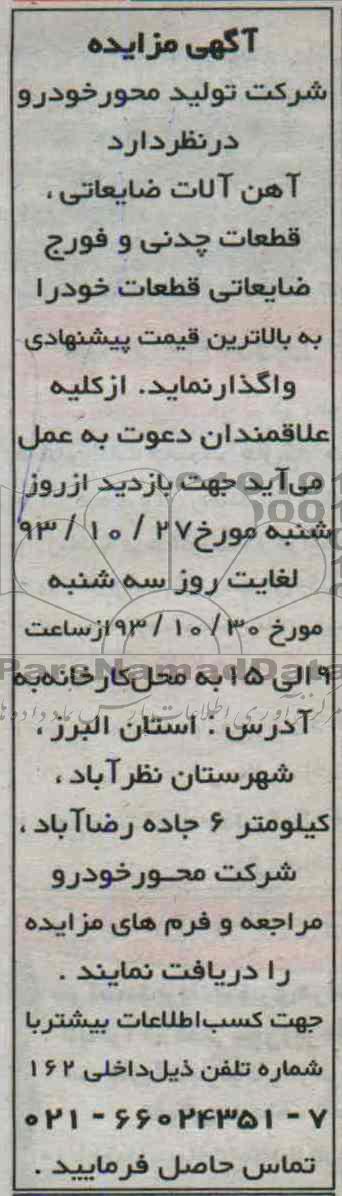 آگهی مزایده
شرکت تولید محورخودرو
درنظردارد
آهن آلات ضایعاتی ،
قطعات چدنی و فورج
ضایعاتی قطعات خودرا
به بالاترین قیمت پیشنهادی
واگذارنماید. ازکلیه
علاقمندان دعوت به عمل
می‌آید جهت بازدید ازروز
شنبه مورخ ۲۷ / ۱۰ / ۹۳
لغایت روز سه شنبه
مورخ ۳۰ / ۱۰ / ۹۳ ازساعت
ParsNamadData
۹ الی ۱۵ به محل‌کارخانه‌به
آدرس : استان البرز ،
شهرستان نظرآباد ،
کیلومتر ۶ جاده رضاآباد ،
شرکت محــورخودرو
مراجعه و فرم های مزایده
را دریافت نمایند .
جهت کسب‌اطلاعات بیشتربا
شماره تلفن ذیل‌داخلی ۱۶۲
۰۲۱ - ۶۶۰۲۴۳۵۱ - ۷
تماس حاصل فرمایید .